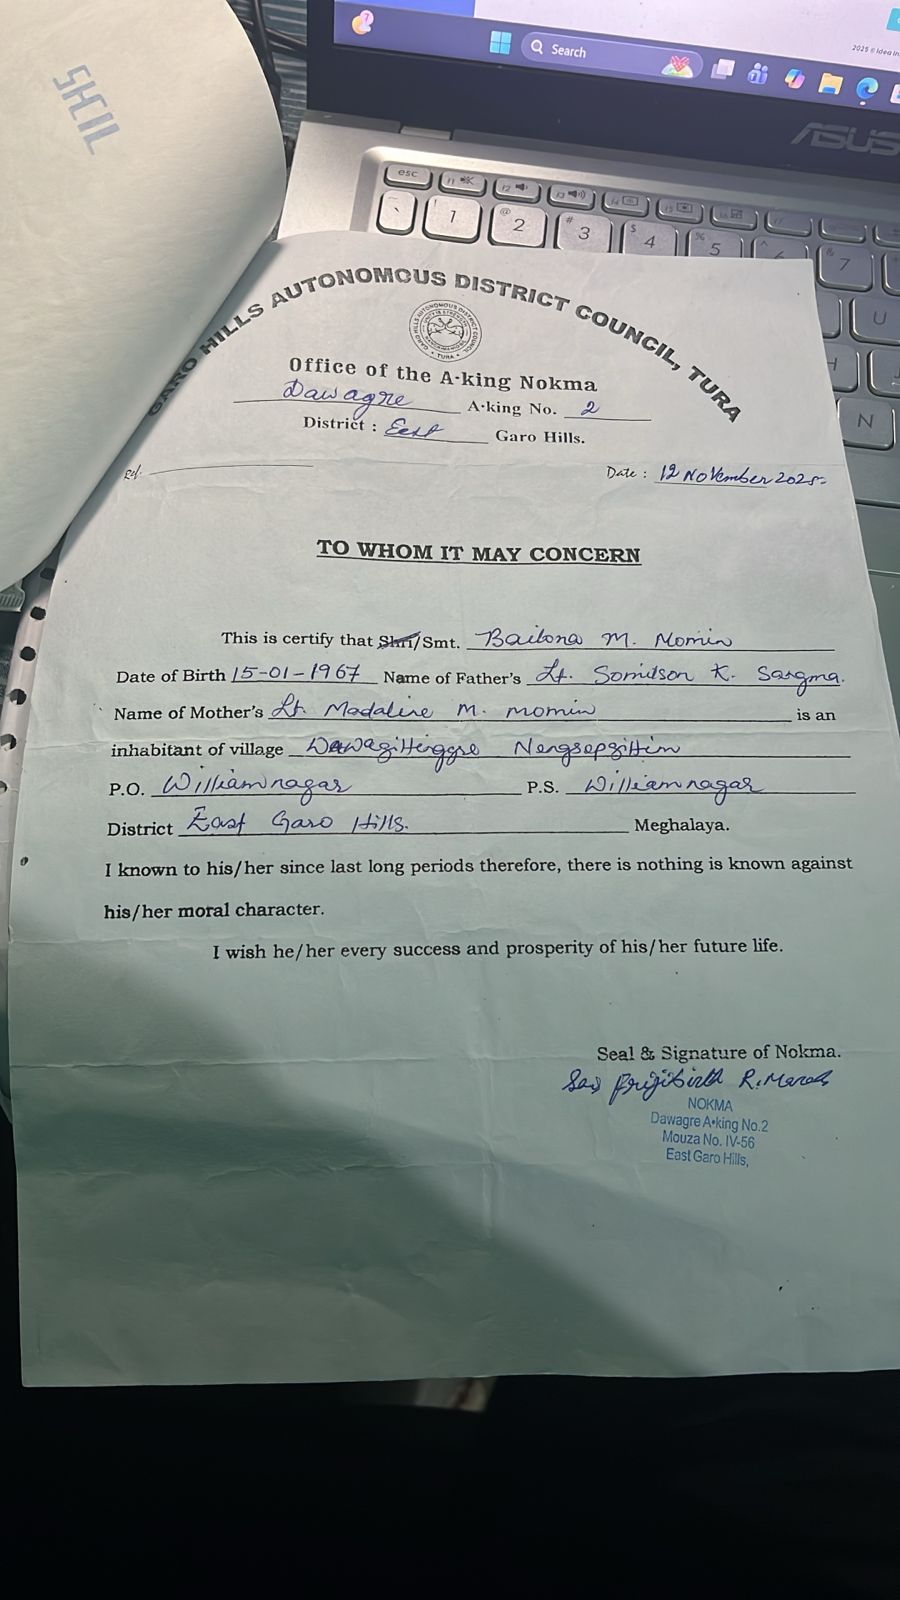 SHCIL
Search
2025 © Idea In
ASUS
esc
1 2 3 4 5 7
U
H
N
GARO HILLS AUTONOMOUS DISTRICT COUNCIL, TURA
Office of the A·king Nokma
Dawagre A·king No. 2
District : East Garo Hills.
Ref.
Date : 12 November 2025
TO WHOM IT MAY CONCERN
This is certify that Shri/Smt. Baitona M. Momin
Date of Birth 15-01-1967 Name of Father's Lt. Somilson K. Sangma.
Name of Mother's Lt. Madaline M. Momin is an
inhabitant of village Dawagittinggre Nengsepgittim
P.O. Williamnagar P.S. Williamnagar
District East Garo Hills. Meghalaya.
I known to his/her since last long periods therefore, there is nothing is known against
his/her moral character.
I wish he/her every success and prosperity of his/her future life.
Seal & Signature of Nokma.
R. Marak
NOKMA
Dawagre A•king No.2
Mouza No. IV-56
East Garo Hills,